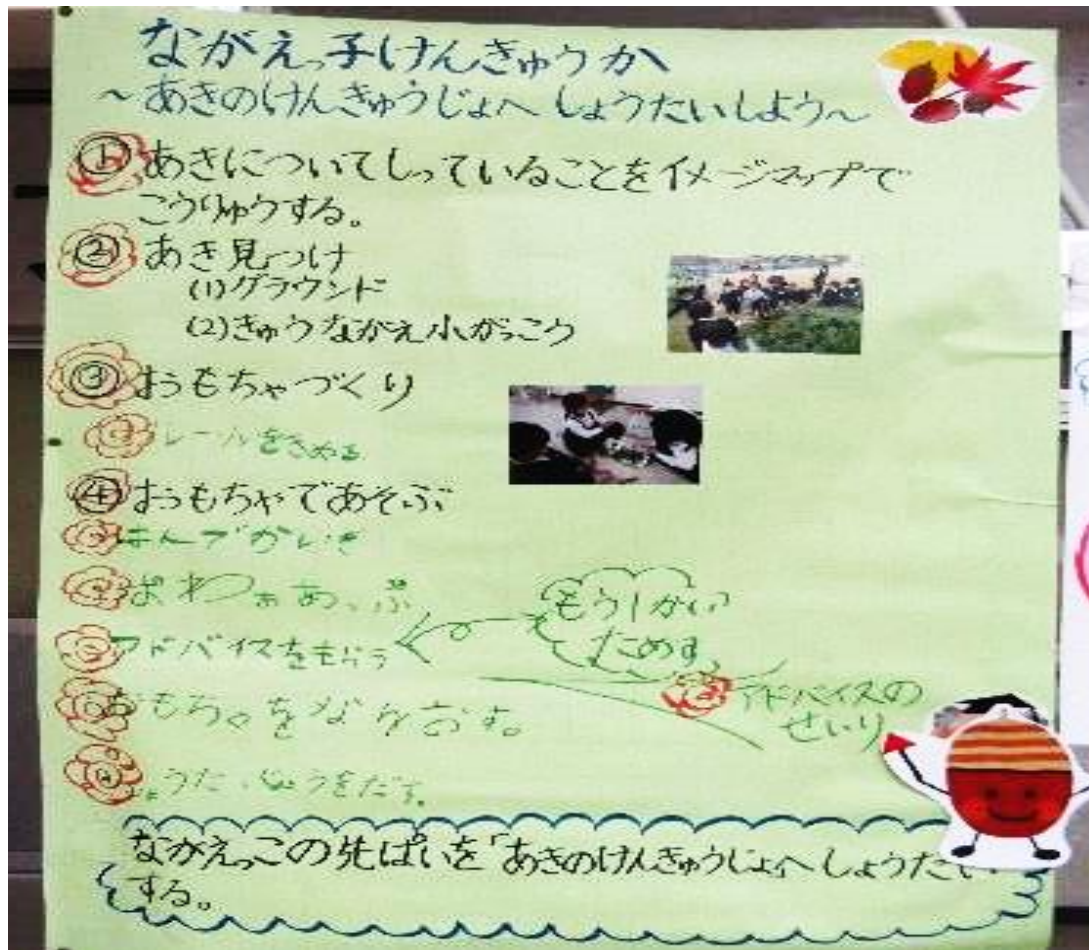 ながえっ子けんきゅうか
～あきのけんきゅうじょへしょうたいしよう～
① あきについてしっていることをイメージマップで
こうりゅうする。
② あき見つけ
(1)グラウンド
(2)きゅうながえ小がっこう
③ おもちゃづくり
ルールをきめる
④ おもちゃであそぶ
ぱわぁあっぷ
アドバイスをもらう
もう1かい
ためす
アドバイスの
せいり
おもちゃをなおす。
しょうたいじょうをだす。
ながえっこの先ぱいを「あきのけんきゅうじょへしょうたい
する。